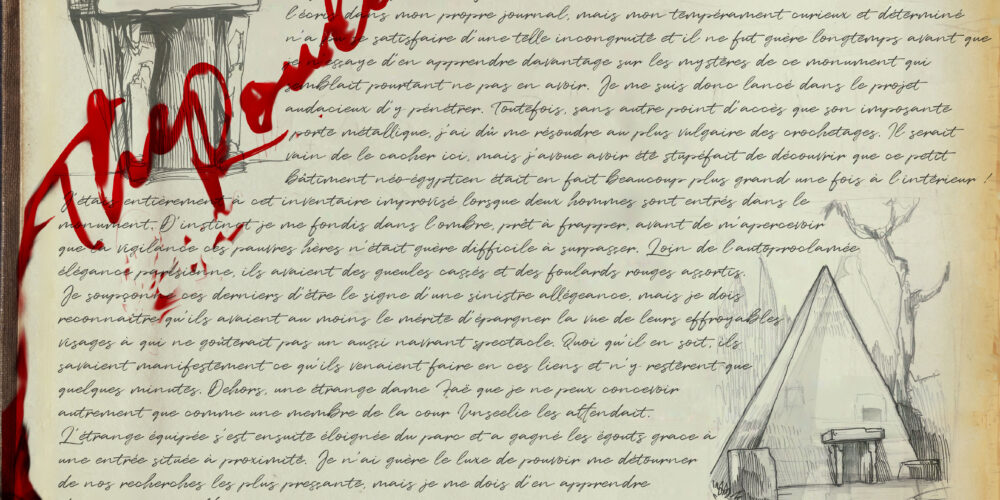 l'écris dans mon propre journal, mais mon tempérament curieux et déterminé
n'a pu se satisfaire d'une telle incongruité et il ne fut guère longtemps avant que
je n'essaye d'en apprendre davantage sur les mystères de ce monument qui
semblait pourtant ne pas en avoir. Je me suis donc lancé dans le projet
audacieux d'y pénétrer. Toutefois, sans autre point d'accès que son imposante
porte métallique, j'ai dû me résoudre au plus vulgaire des crochetages. Il serait
vain de le cacher ici, mais j'avoue avoir été stupéfait de découvrir que ce petit
bâtiment néo-égyptien était en fait beaucoup plus grand une fois à l'intérieur !
J'étais entièrement à cet inventaire improvisé lorsque deux hommes sont entrés dans le
monument. D'instinct je me fondis dans l'ombre, prêt à frapper, avant de m'apercevoir
que la vigilance ces pauvres hères n'était guère difficile à surpasser. Loin de l'autoproclamée
élégance parisienne, ils avaient des gueules cassés et des foulards rouges assortis.
Je soupçonne ces derniers d'être le signe d'une sinistre allégeance, mais je dois
reconnaître qu'ils avaient au moins le mérite d'épargner la vue de leurs effroyables
visages à qui ne goûterait pas un aussi navrant spectacle. Quoi qu'il en soit, ils
savaient manifestement ce qu'ils venaient faire en ces liens et n'y restèrent que
quelques minutes. Dehors, une étrange dame Faë que je ne peux concevoir
autrement que comme une membre de la cour Unseelie les attendait.
L'étrange équipée s'est ensuite éloignée du parc et a gagné les égouts grâce à
une entrée située à proximité. Je n'ai guère le luxe de pouvoir me détourner
de nos recherches les plus pressante, mais je me dois d'en apprendre